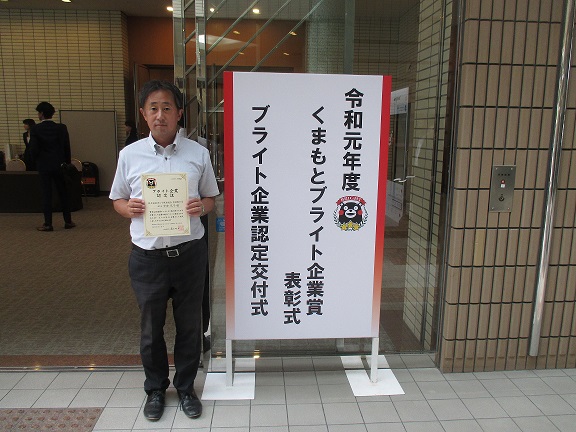 令和元年度
くまもとブライト企業賞
表彰式
ブライト企業認定交付式
ブライト企業
認定証